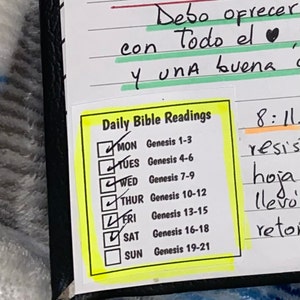 Debo ofrecer
con Todo el ♥
y UNA buena
Daily Bible Readings
☑ MON Genesis 1-3
☑ TUES Genesis 4-6
☑ WED Genesis 7-9
☑ THUR Genesis 10-12
☑ FRI Genesis 13-15
☑ SAT Genesis 16-18
☐ SUN Genesis 19-21
8:11
resis
hoja
llevo
retor